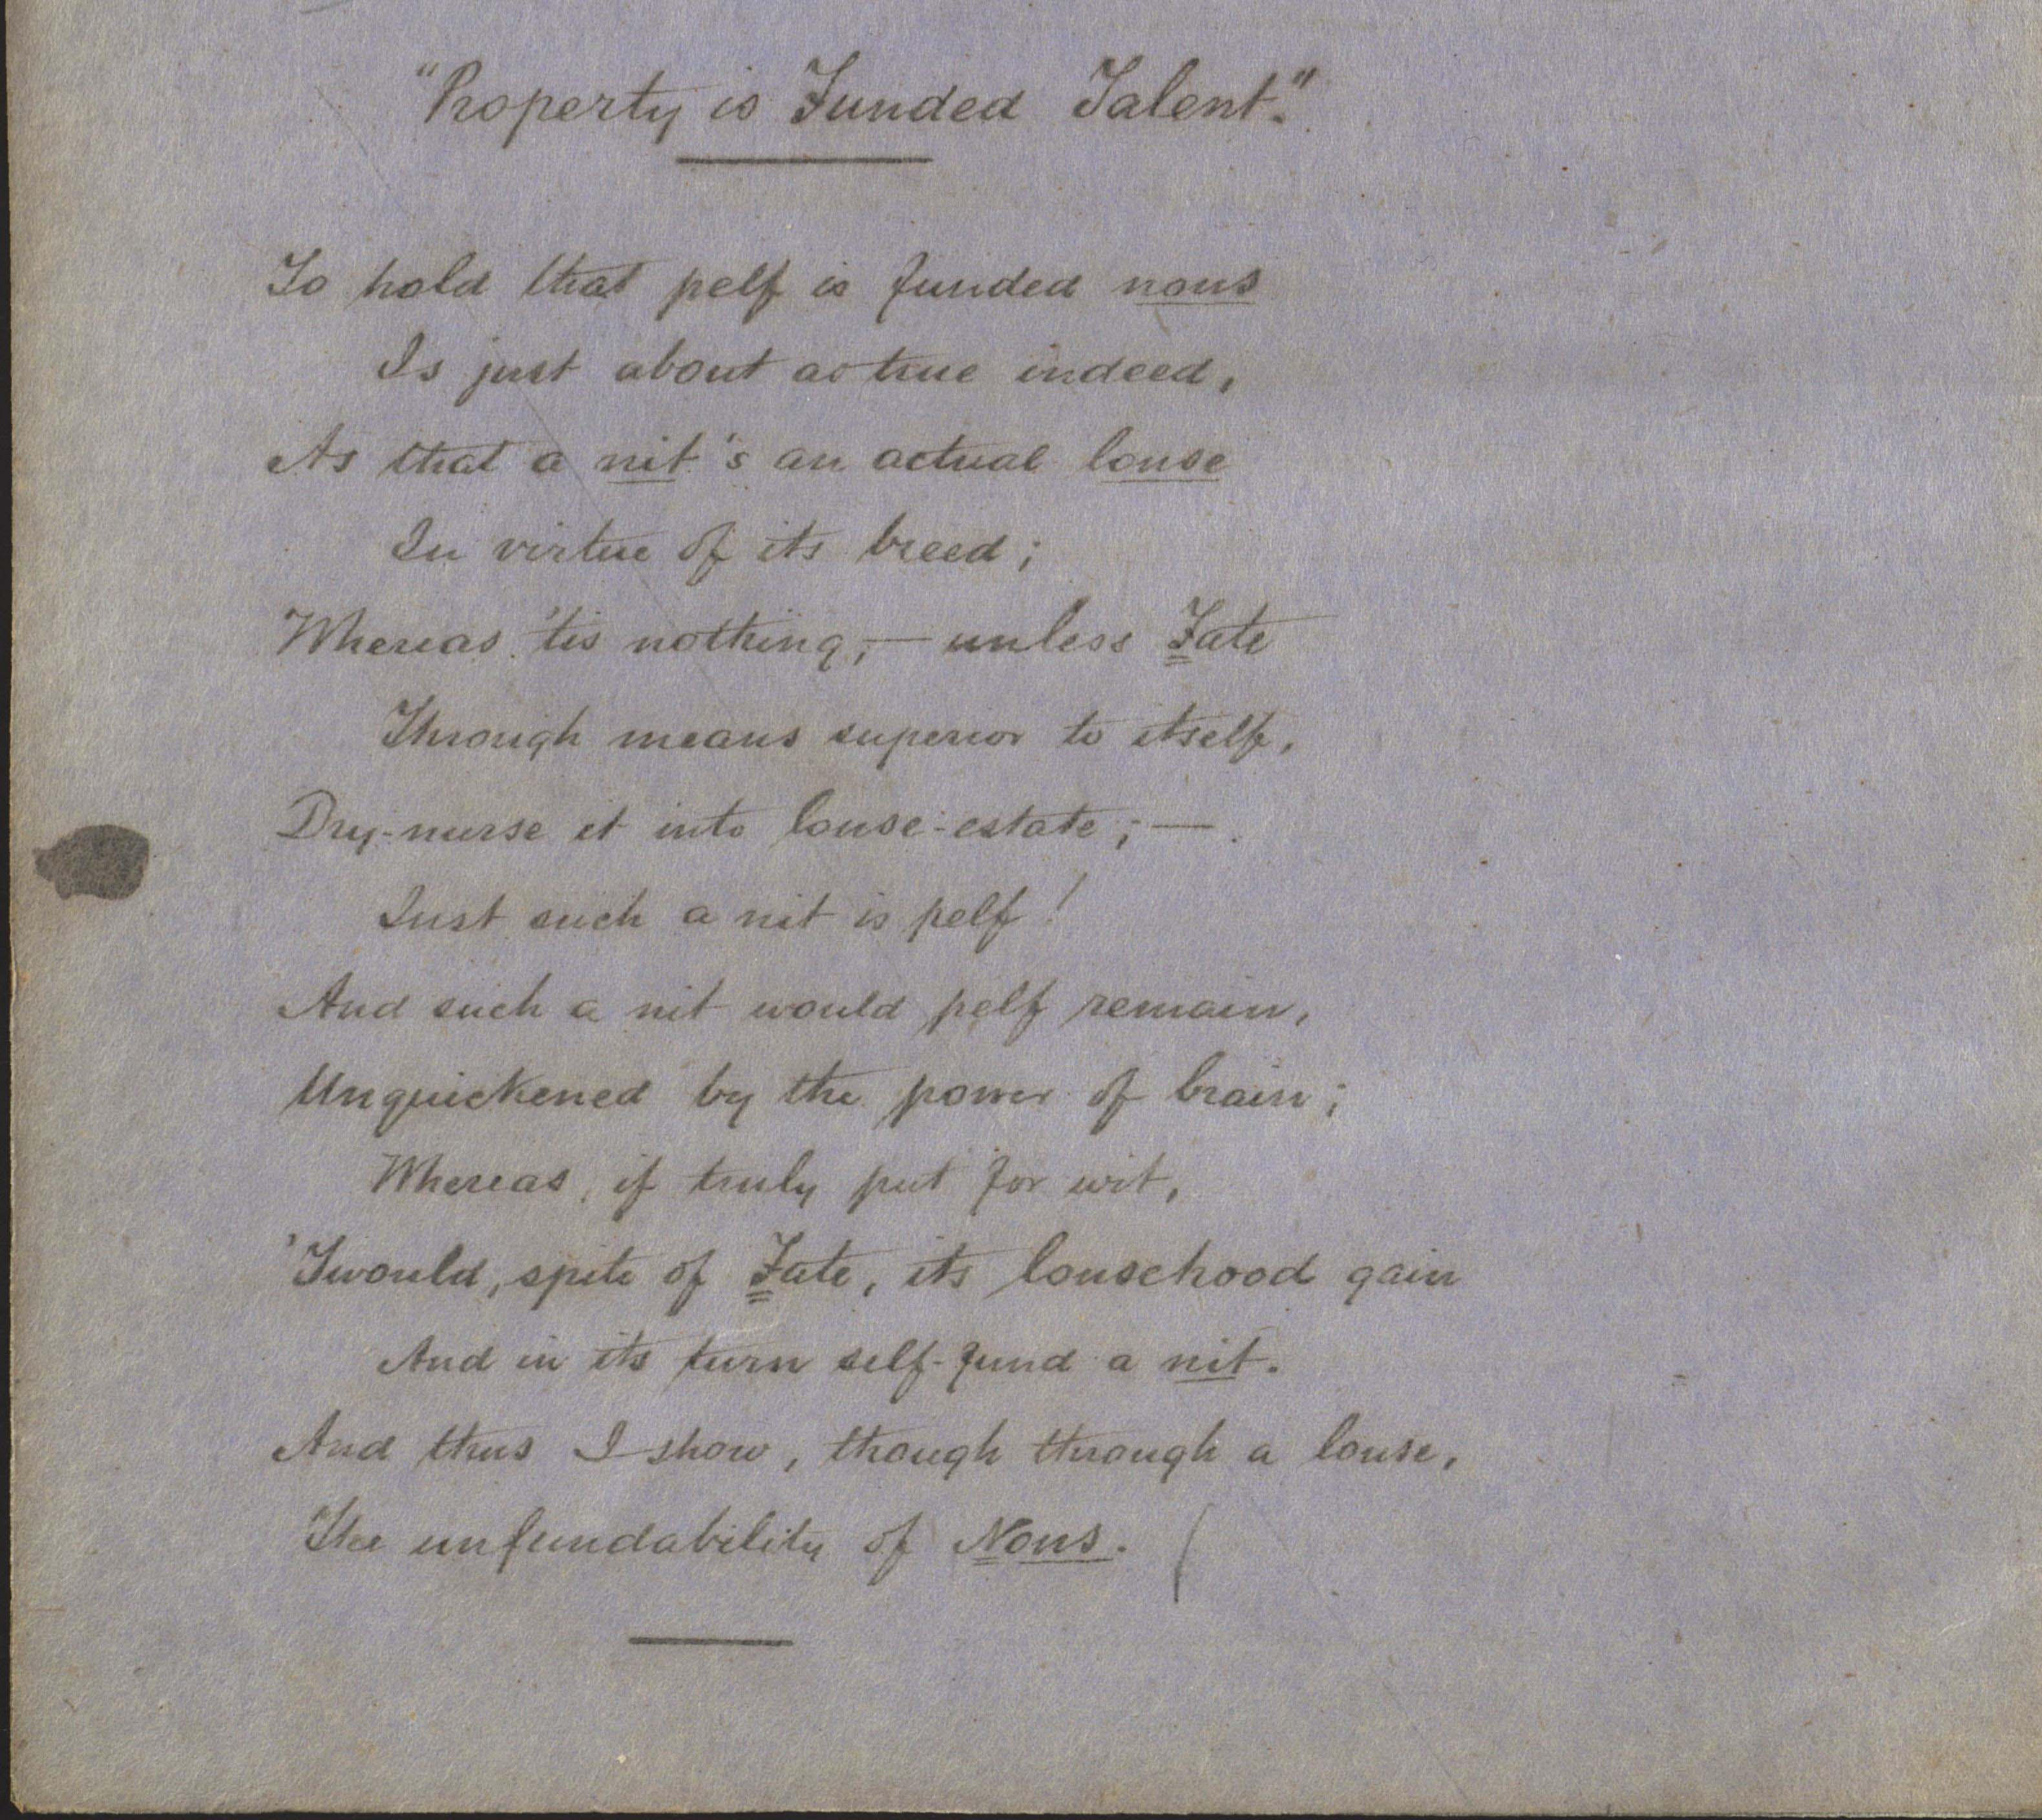 "Property is Funded Talent."
To hold that pelf is funded nous
Is just about as true indeed,
As that a nit's an actual louse
In virtue of its breed;
Whereas 'tis nothing,— unless Fate
Through means superior to itself,
Dry-nurse it into louse-estate;—
Just such a nit is pelf!
And such a nit would pelf remain,
Unquickened by the power of brain;
Whereas, if truly put for wit,
'Twould, spite of Fate, its lousehood gain
And in its turn self-fund a nit.
And thus I show, though through a louse,
The unfundability of Nous.